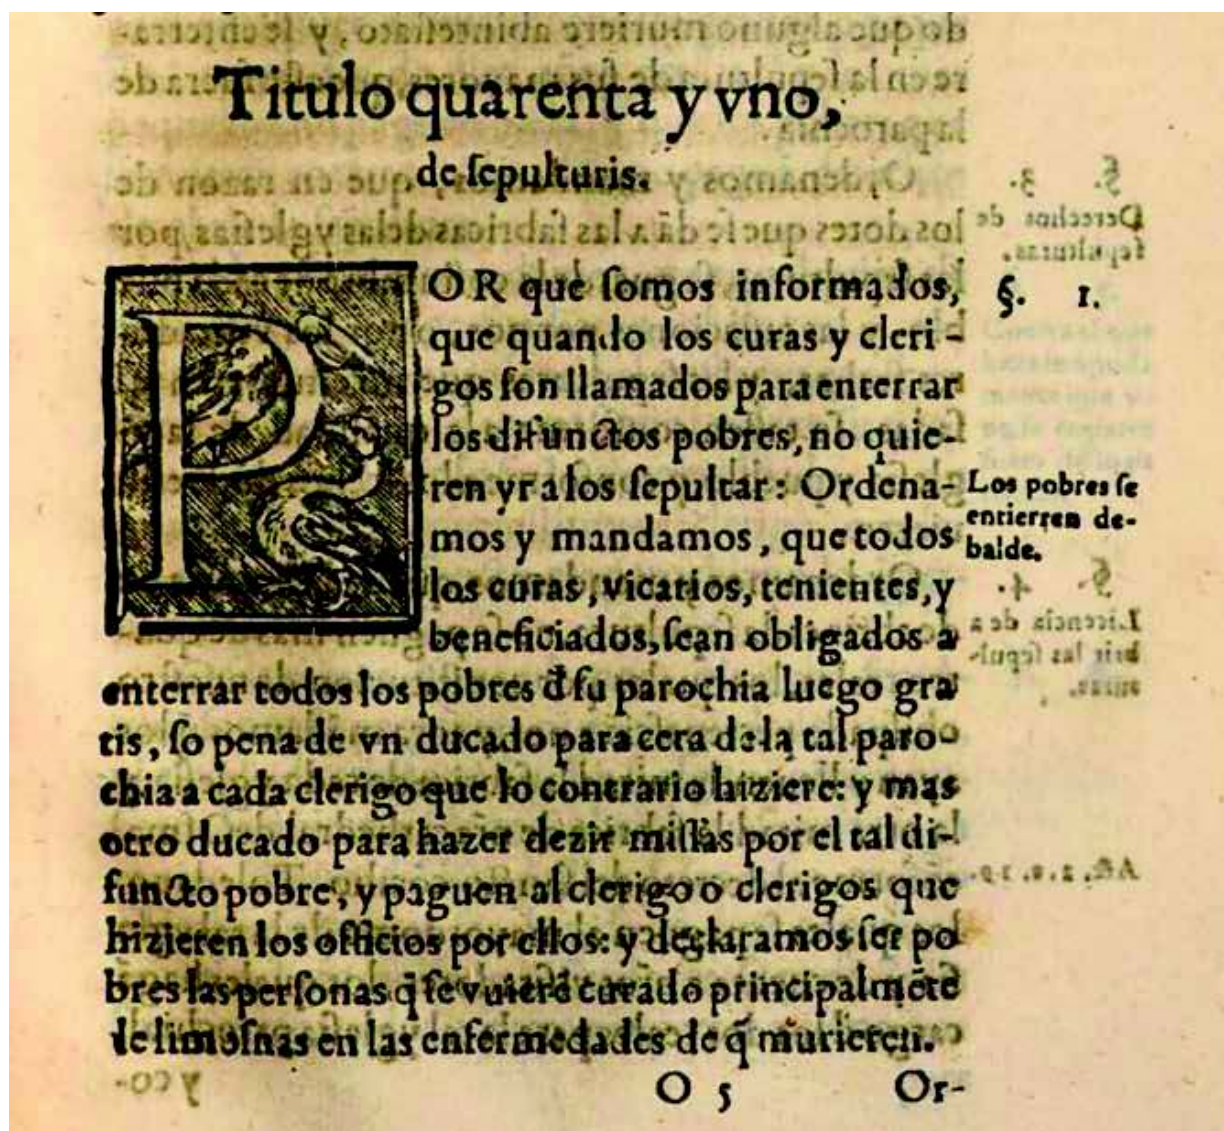 Titulo quarenta y vno,
de ſepulturis.
POR que ſomos informados,
que quando los curas y cleri-
gos ſon llamados para enterrar
los difunctos pobres, no quie-
ren yr a los ſepultar: Ordena-
mos y mandamos, que todos
los curas, vicarios, tenientes, y
beneficiados, ſean obligados a
enterrar todos los pobres đ ſu parochia luego gra
tis, ſo pena de vn ducado para cera de la tal paro-
chia a cada clerigo que lo contrario hiziere: y mas
otro ducado para hazer dezir miſſas por el tal di-
functo pobre, y paguen al clerigo o clerigos que
hizieren los officios por ellos: y declaramos ſer po
bres las perſonas q̃ ſe vuierẽ curado principalmẽte
de limoſnas en las enfermedades de q̃ murieren.
O 5 Or-
§. 1.
Los pobres ſe
entierren de-
balde.